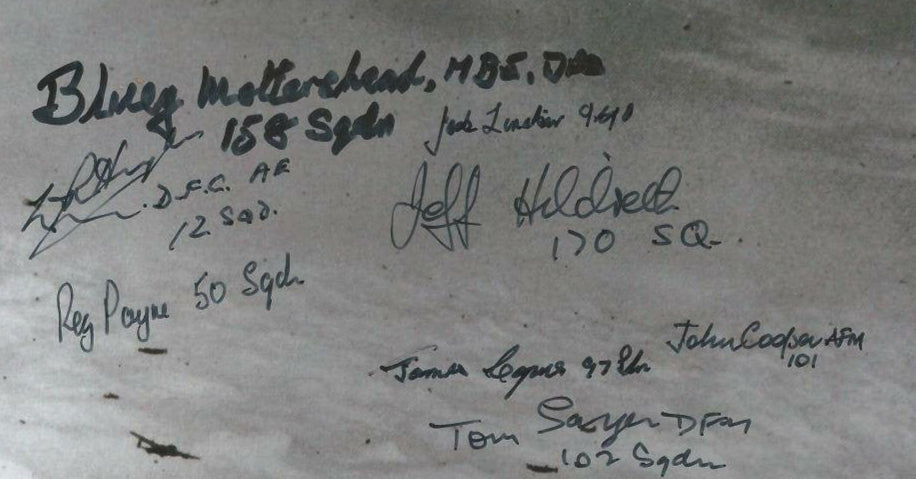 Bluey Mottershead, MBE, DFC
158 Sqdn
D.F.C. AE
12 SQD.
Jeff Hildreth
170 SQ.
Reg Payne 50 Sqdn
John Cooper AFM
101
James 97 Sdn
Tom Sayer DFM
102 Sqdn